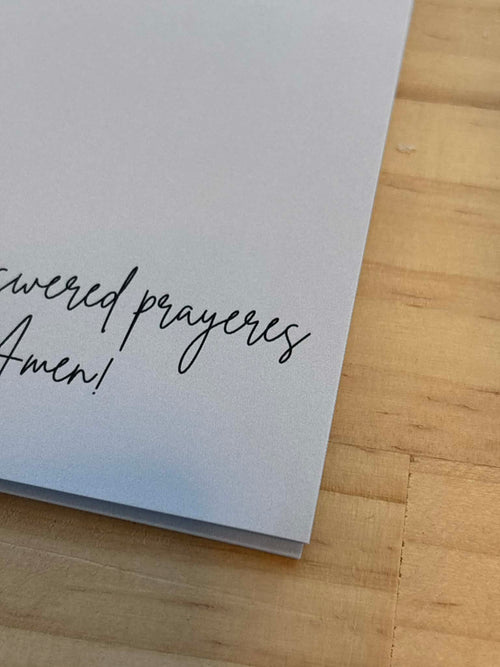 swered prayeres
Amen!